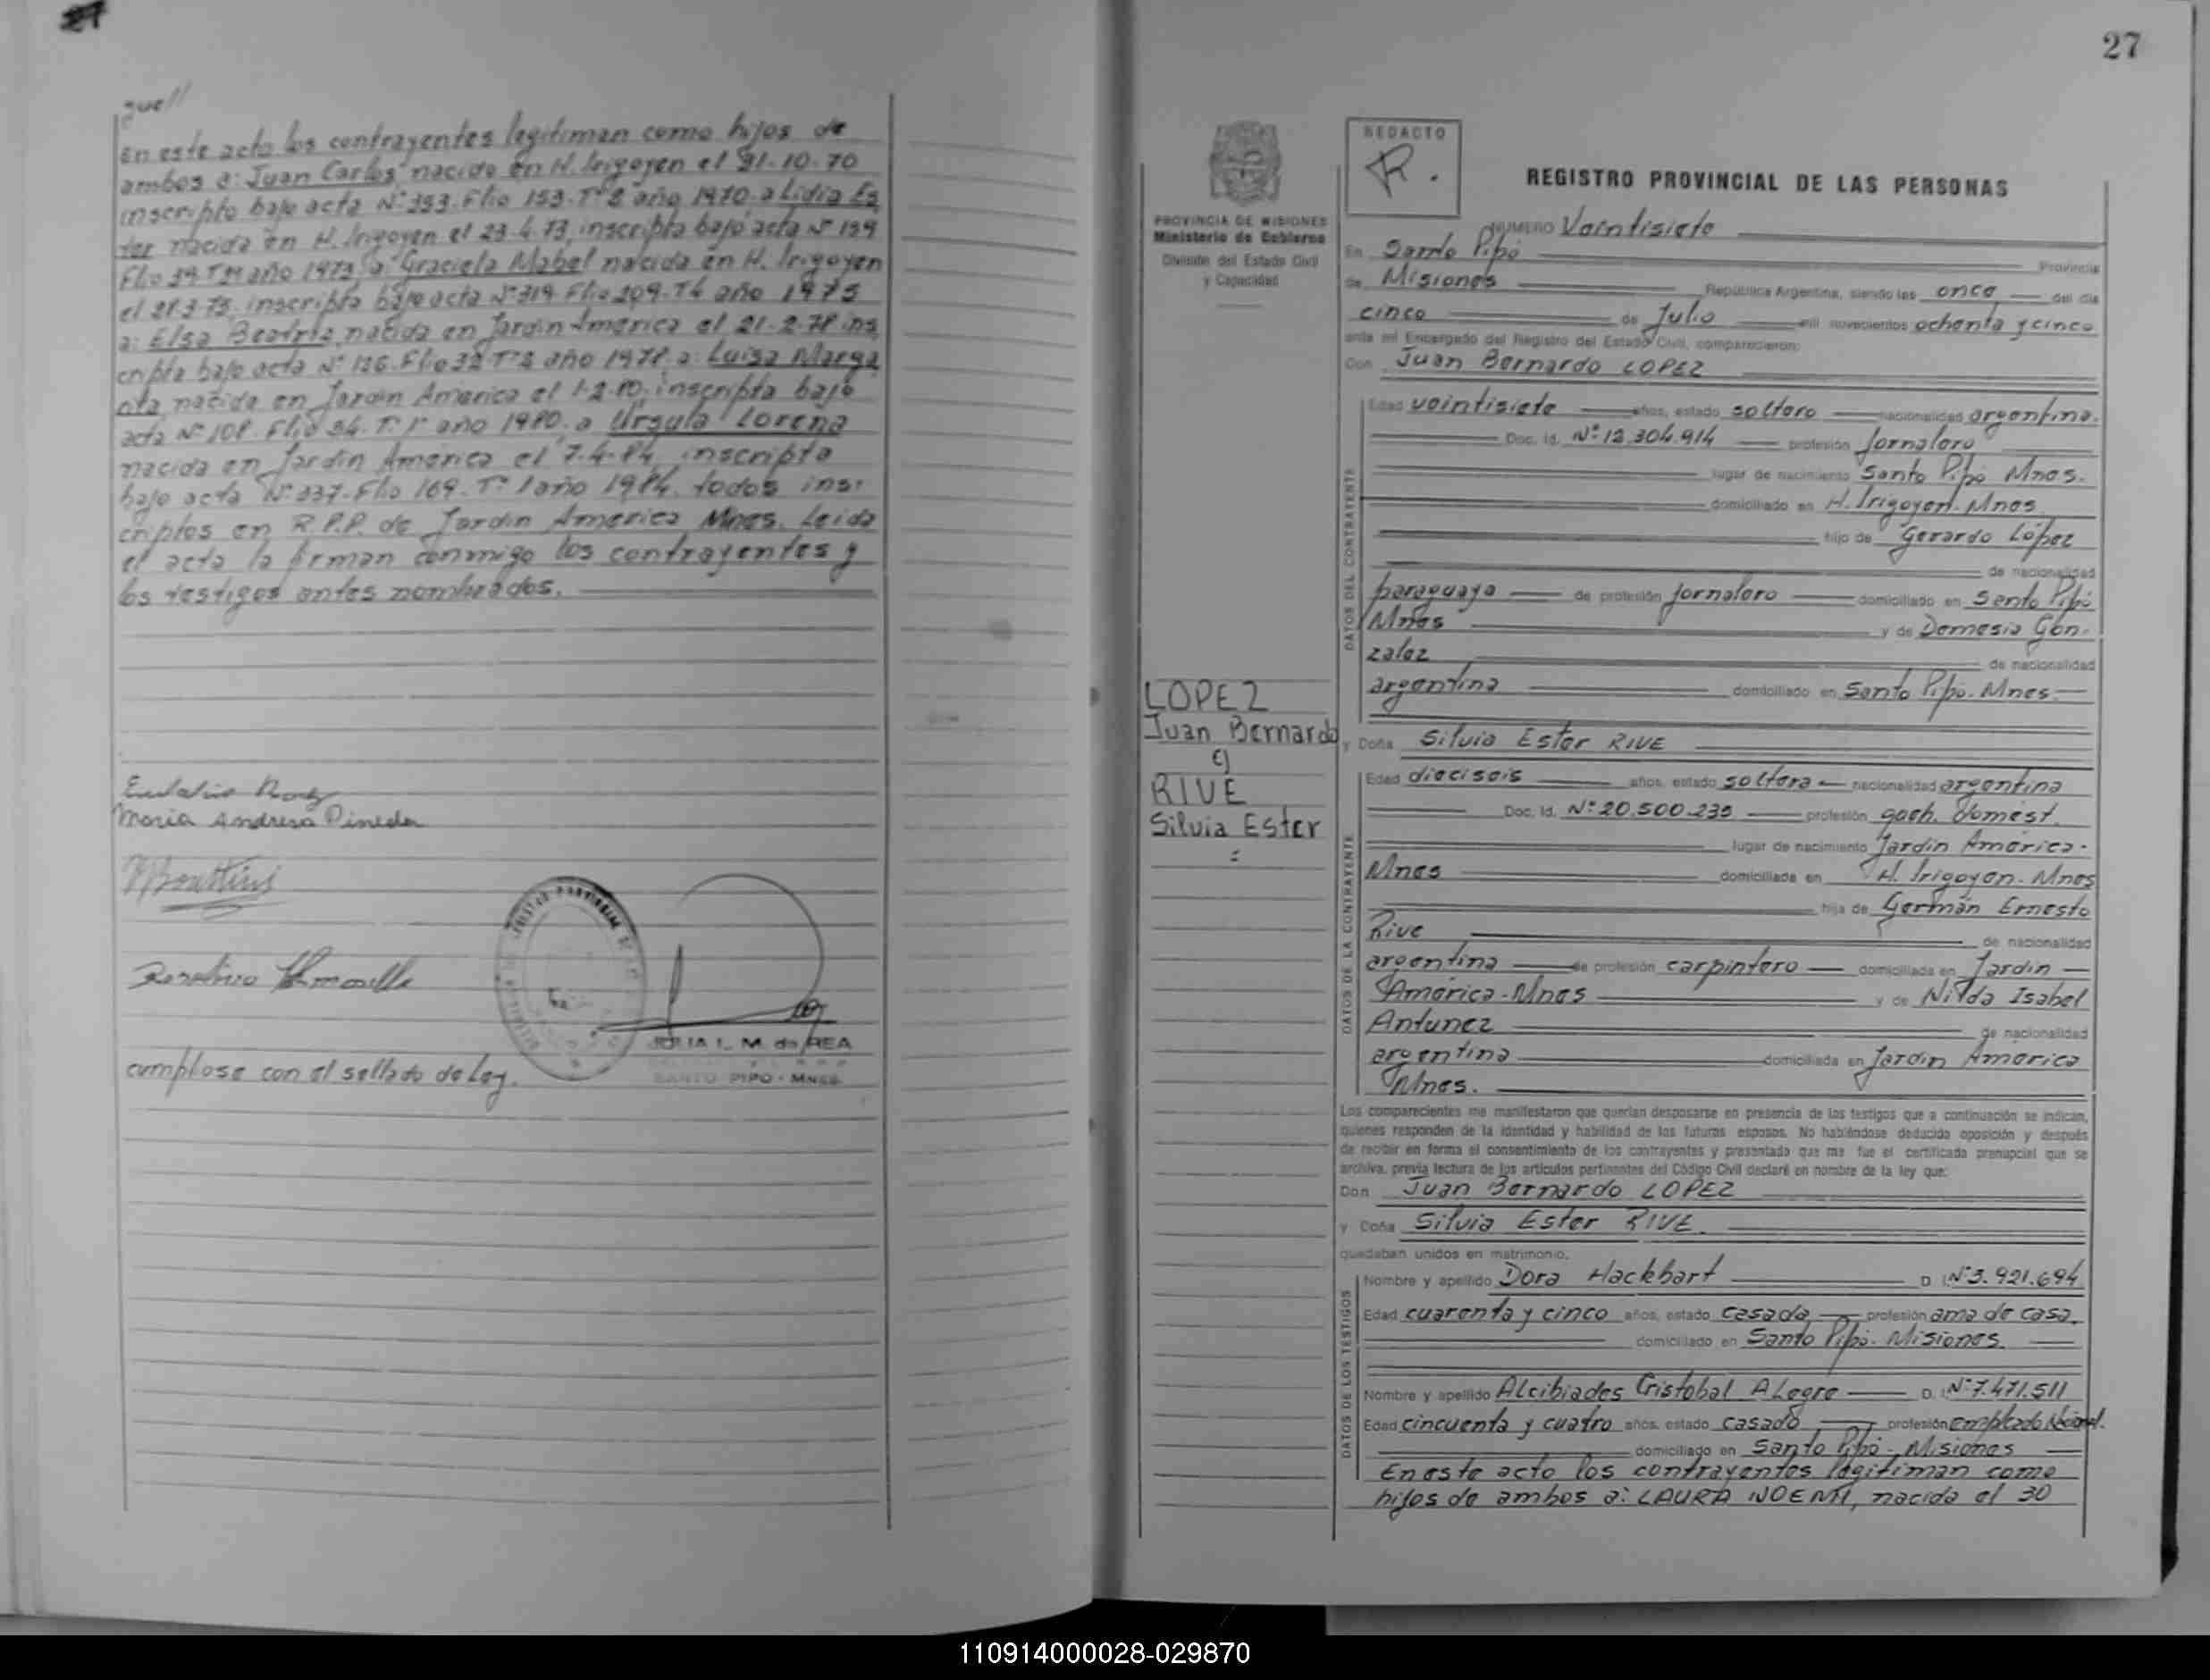 27
guell
en este acto los contrayentes legitiman como hijos de
ambos a: Juan Carlos nacido en H. Irigoyen el 31-10-70
inscripto bajo acta Nº 353. Flio 153. Tº 2 año 1970. a Lidia Es
ter nacida en H. Irigoyen el 23-4-73, inscripta bajo acta Nº 199
Flio año 1973, a: Graciela Mabel nacida en H. Irigoyen
el 21-3-75, inscripta bajo acta Nº 319 Flio 209. año 1975
a: Elsa Beatriz nacida en Jardin America el 21-2-78 ins
cripta bajo acta Nº 126. Flio 32 Tº 2 año 1978. a: Luisa Marga
rita nacida en Jardin America el 1-2-80, inscripta bajo
acta Nº 108. Flio 54. Tº 1º año 1980. a Ursula Lorena
nacida en Jardin America el 7-4-84, inscripta
bajo acta Nº 337. Flio 169. Tº 1 año 1984. todos ins-
criptos en R.P.P. de Jardin America Mnes. Leida
el acta la firman conmigo los contrayentes y
los testigos antes nombrados.
Eulalio
Maria Andresa Pineda
JULIA L. M. de REA
SANTO PIPO - MNES.
cumplase con el sellado de Ley.
27
PROVINCIA DE MISIONES
Ministerio de Gobierno
División del Estado Civil
y Capacidad
REDACTO
R.
REGISTRO PROVINCIAL DE LAS PERSONAS
NUMERO Veintisiete
En Santo Pipó Provincia
de Misiones República Argentina, siendo las once del día
cinco de Julio mil novecientos ochenta y cinco
ante mí Encargado del Registro del Estado Civil, comparecieron:
Don Juan Bernardo LOPEZ
DATOS DEL CONTRAYENTE
Edad veintisiete años, estado soltero nacionalidad argentina.
Doc. Id. Nº 12.304.914 profesión Jornalero
lugar de nacimiento Santo Pipó Mnes.
domiciliado en H. Irigoyen. Mnes
hijo de Gerardo López
de nacionalidad
paraguaya de profesión Jornalero domiciliado en Santo Pipó
Mnes y de Demesia Gon-
zalez de nacionalidad
argentina domiciliado en Santo Pipó. Mnes.
LOPEZ
Juan Bernardo
c)
RIVE
Silvia Ester
=
y Doña Silvia Ester RIVE
DATOS DE LA CONTRAYENTE
Edad dieciseis años, estado soltera nacionalidad argentina
Doc. Id. Nº 20.500.235 profesión queh. domest.
lugar de nacimiento Jardin America-
Mnes domiciliada en H. Irigoyen. Mnes
hija de Germán Ernesto
Rive de nacionalidad
argentina de profesión carpintero domiciliada en Jardin
America-Mnes y de Nilda Isabel
Antunez de nacionalidad
argentina domiciliada en Jardin America
Mnes.
Los comparecientes me manifestaron que querían desposarse en presencia de los testigos que a continuación se indican,
quienes responden de la identidad y habilidad de los futuros esposos. No habiéndose deducido oposición y después
de recibir en forma el consentimiento de los contrayentes y presentado que me fue el certificado prenupcial que se
archiva, previa lectura de los artículos pertinentes del Código Civil declaré en nombre de la ley que:
Don Juan Bernardo LOPEZ
y Doña Silvia Ester RIVE.
quedaban unidos en matrimonio.
DATOS DE LOS TESTIGOS
Nombre y apellido Dora Hackbart D. I. Nº 3.921.694
Edad cuarenta y cinco años, estado casada profesión ama de casa.
domiciliado en Santo Pipó. Misiones.
Nombre y apellido Alcibiades Cristobal Alegre D. I. Nº 7.471.511
Edad cincuenta y cuatro años, estado casado profesión empleado Nacional.
domiciliado en Santo Pipó - Misiones
En este acto los contrayentes legitiman como
hijos de ambos a: LAURA NOEMI, nacida el 30
110914000028-029870